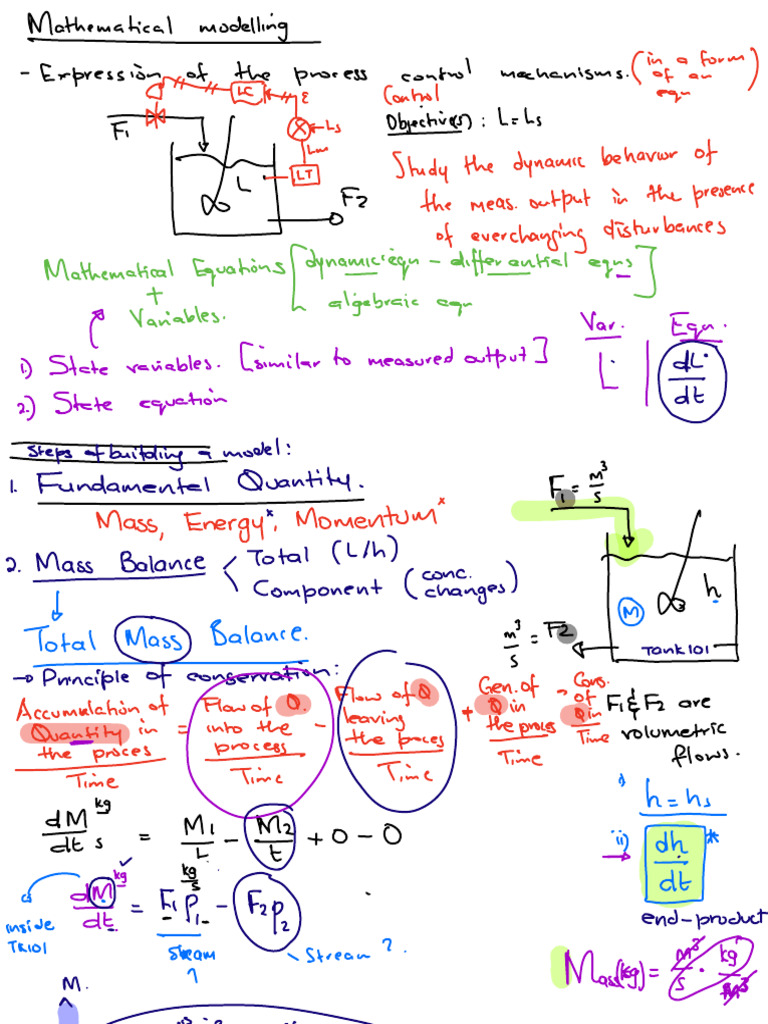 Mathematical modelling
- Expression of the process control mechanisms. (in a form of an eqn)
LC
ε
F1
Ls
Lm
L
LT
F2
Control
Objective(s) : L = Ls
Study the dynamic behavior of
the meas. output in the presence
of everchanging disturbances
Mathematical Equations [dynamic eqn - differential eqns
+
Variables.
algebraic eqn]
1.) State variables. [similar to measured output]
2.) State equation
Var. | Eqn.
L | dL/dt
Steps of building a model:
1. Fundamental Quantity.
Mass, Energy*, Momentum*
2. Mass Balance < Total (L/h)
Component (conc. changes)
F1 = m³/s
h
M
m³/s = F2
TANK101
Total Mass Balance.
→ Principle of conservation:
Accumulation of Quantity in the proces / Time = Flow of Q. into the process / Time - Flow of Q leaving the proces / Time + Gen. of Q in the proces / Time - Cons. of Q in / Time
F1 & F2 are
volumetric
flows.
dM/dt kg/s = M1/t - M2/t + 0 - 0
i) h = hs
ii) dh/dt *
end-product
dM/dt kg = F1ρ1 kg/s - F2ρ2
inside
TK101
Stream
1
- Stream 2.
Mass(kg) = m³/s · kg/m³
M.